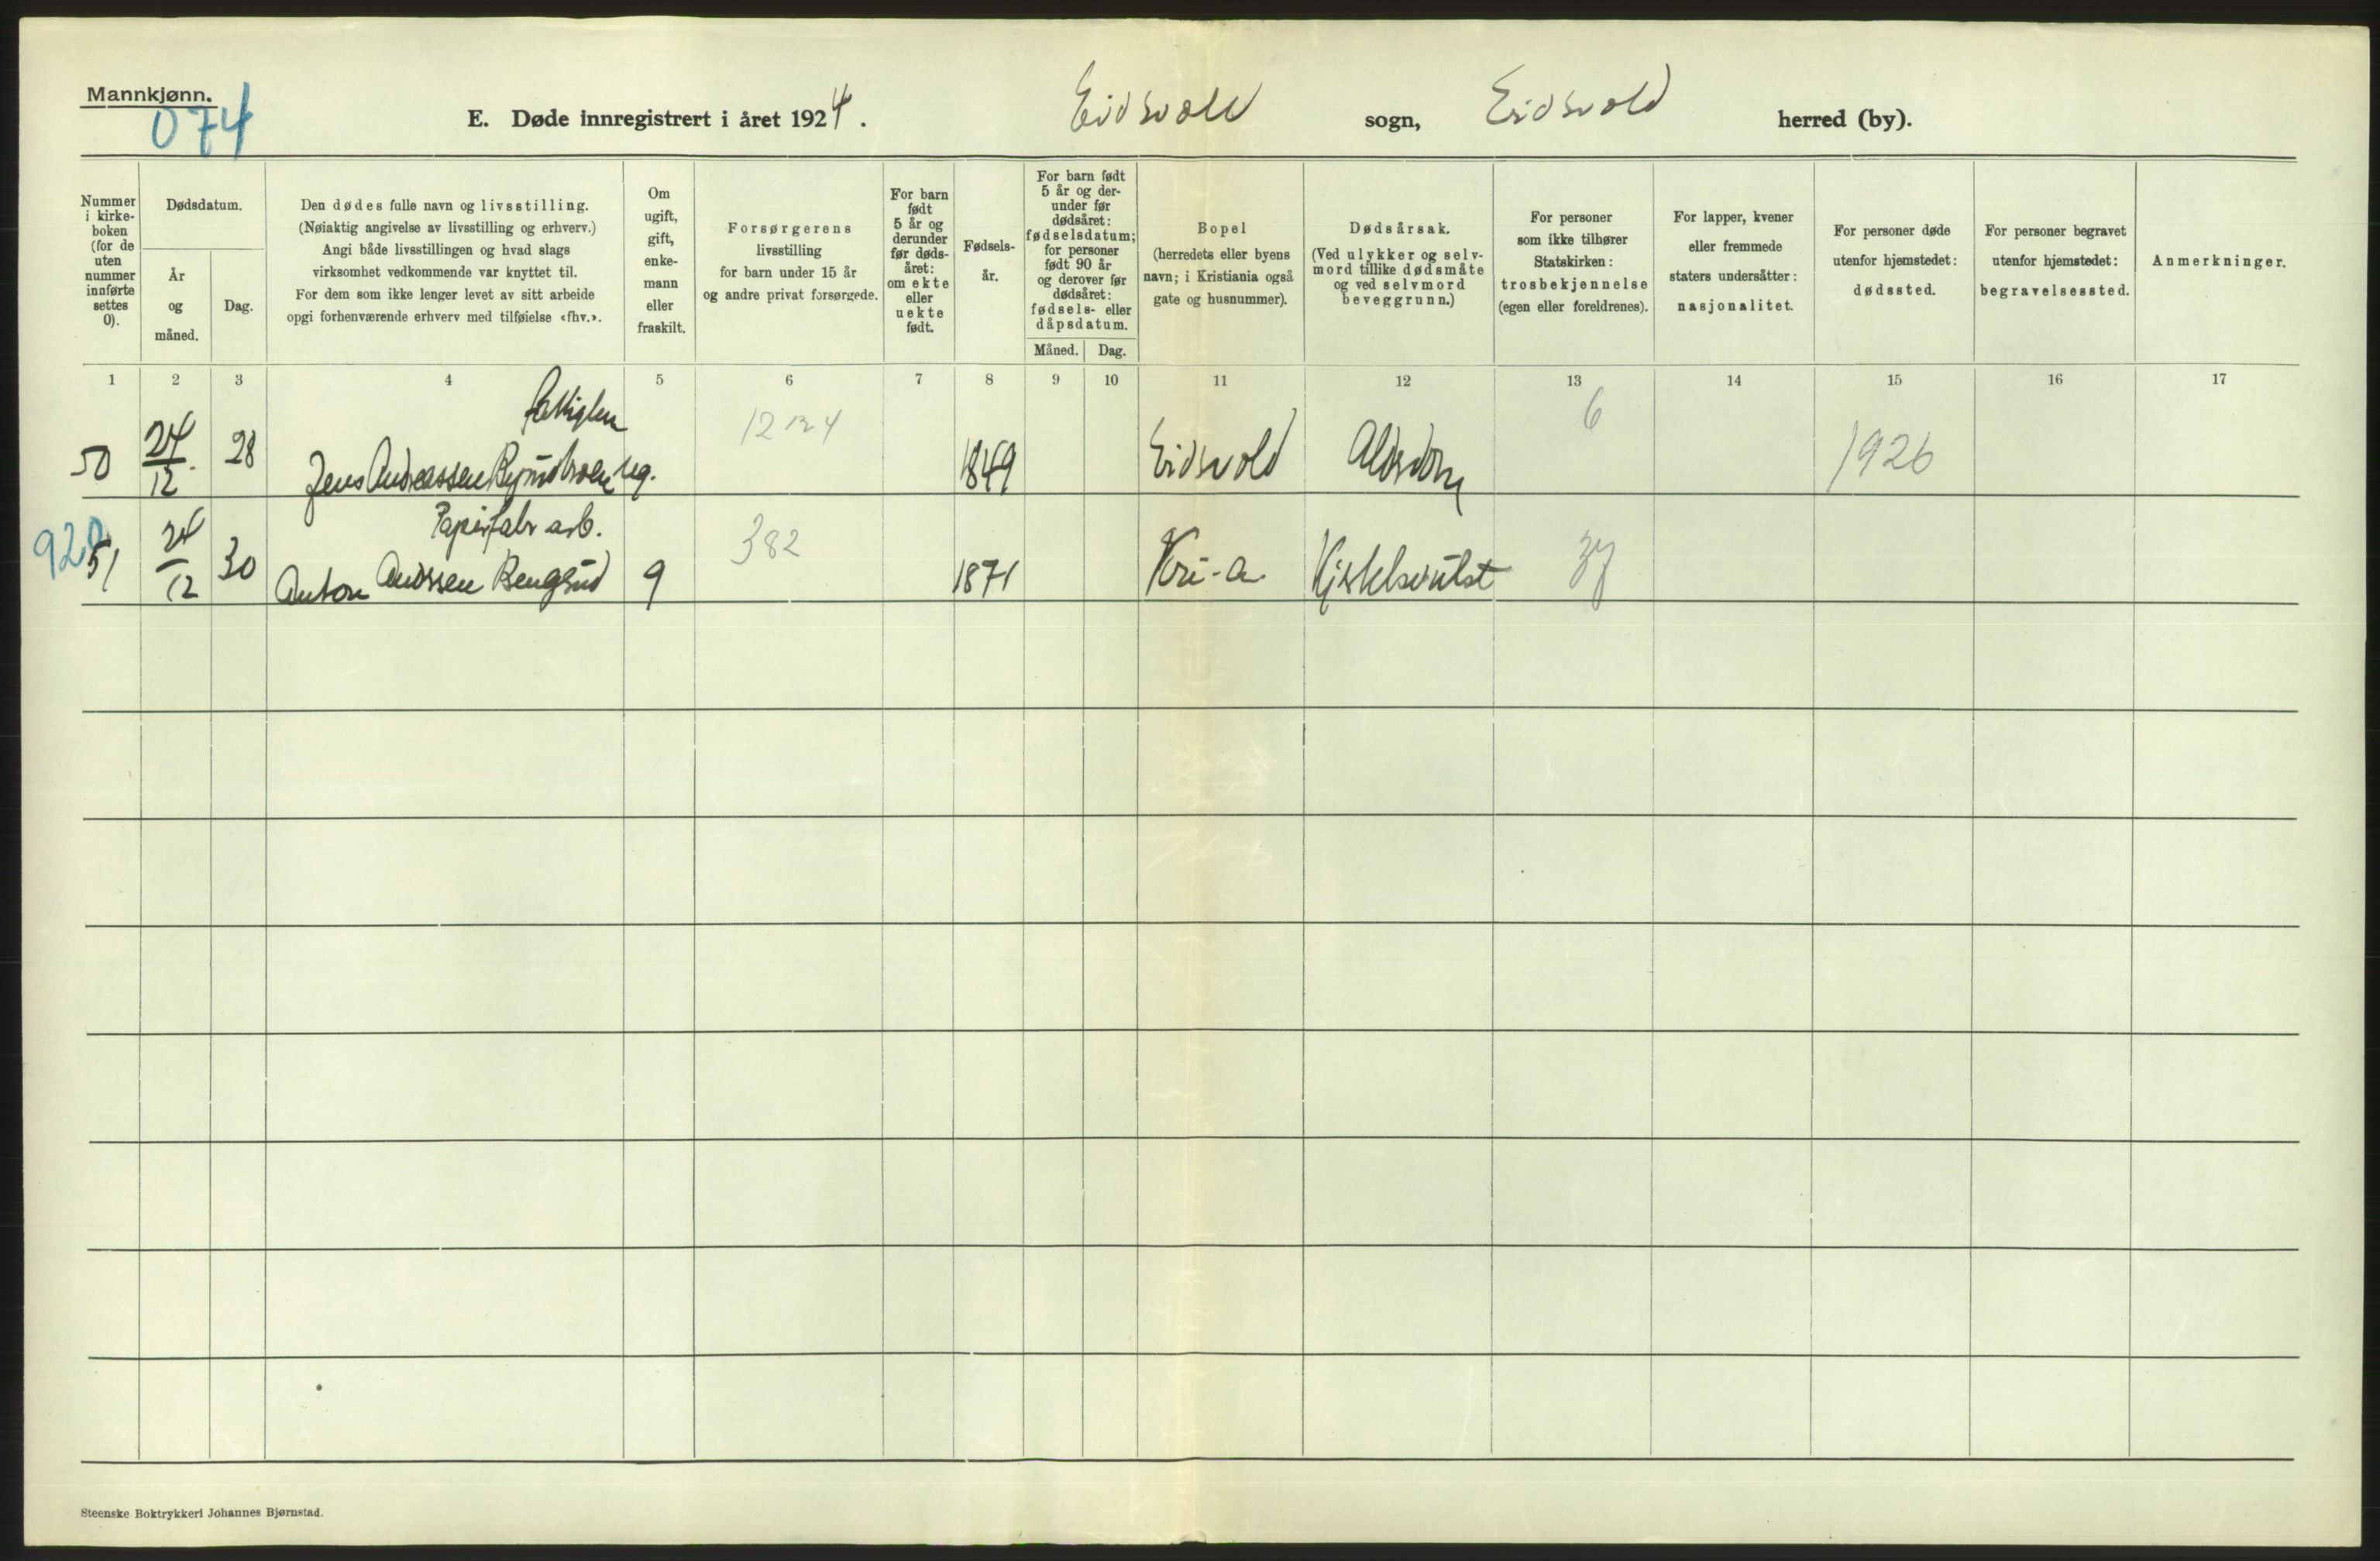 Mannkjønn.
074
E. Døde innregistrert i året 1924. Eidsvold sogn, Eidsvold herred (by).
Nummer i kirke- boken (for de uten nummer innførte settes 0).
Dødsdatum.
År og måned.
Dag.
Den dødes fulle navn og livsstilling.
(Nøiaktig angivelse av livsstilling og erhverv.)
Angi både livsstillingen og hvad slags
virksomhet vedkommende var knyttet til.
For dem som ikke lenger levet av sitt arbeide
opgi forhenværende erhverv med tilføielse «fhv.».
Om ugift, gift, enke- mann eller fraskilt.
Forsørgerens
livsstilling
for barn under 15 år
og andre privat forsørgede.
For barn født 5 år og derunder før døds- året: om ekte eller uekte født.
Fødsels- år.
For barn født 5 år og der- under før dødsåret: fødselsdatum; for personer født 90 år og derover før dødsåret: fødsels- eller dåpsdatum.
Måned. Dag.
Bopel
(herredets eller byens
navn; i Kristiania også
gate og husnummer).
Dødsårsak.
(Ved ulykker og selv-
mord tillike dødsmåte
og ved selvmord
beveggrunn.)
For personer
som ikke tilhører
Statskirken:
trosbekjennelse
(egen eller foreldrenes).
For lapper, kvener
eller fremmede
staters undersåtter:
nasjonalitet.
For personer døde
utenfor hjemstedet:
dødssted.
For personer begravet
utenfor hjemstedet:
begravelsessted.
Anmerkninger.
1 2 3 4 5 6 7 8 9 10 11 12 13 14 15 16 17
50 24/12. 28 Jens Andreassen ug. 1849 Eidsvold Aldrdom 6 1926
Papirfabr arb.
51 24/12 30 Anton Andrssen 9 382 1871 Kri-a
Steenske Boktrykkeri Johannes Bjørnstad.